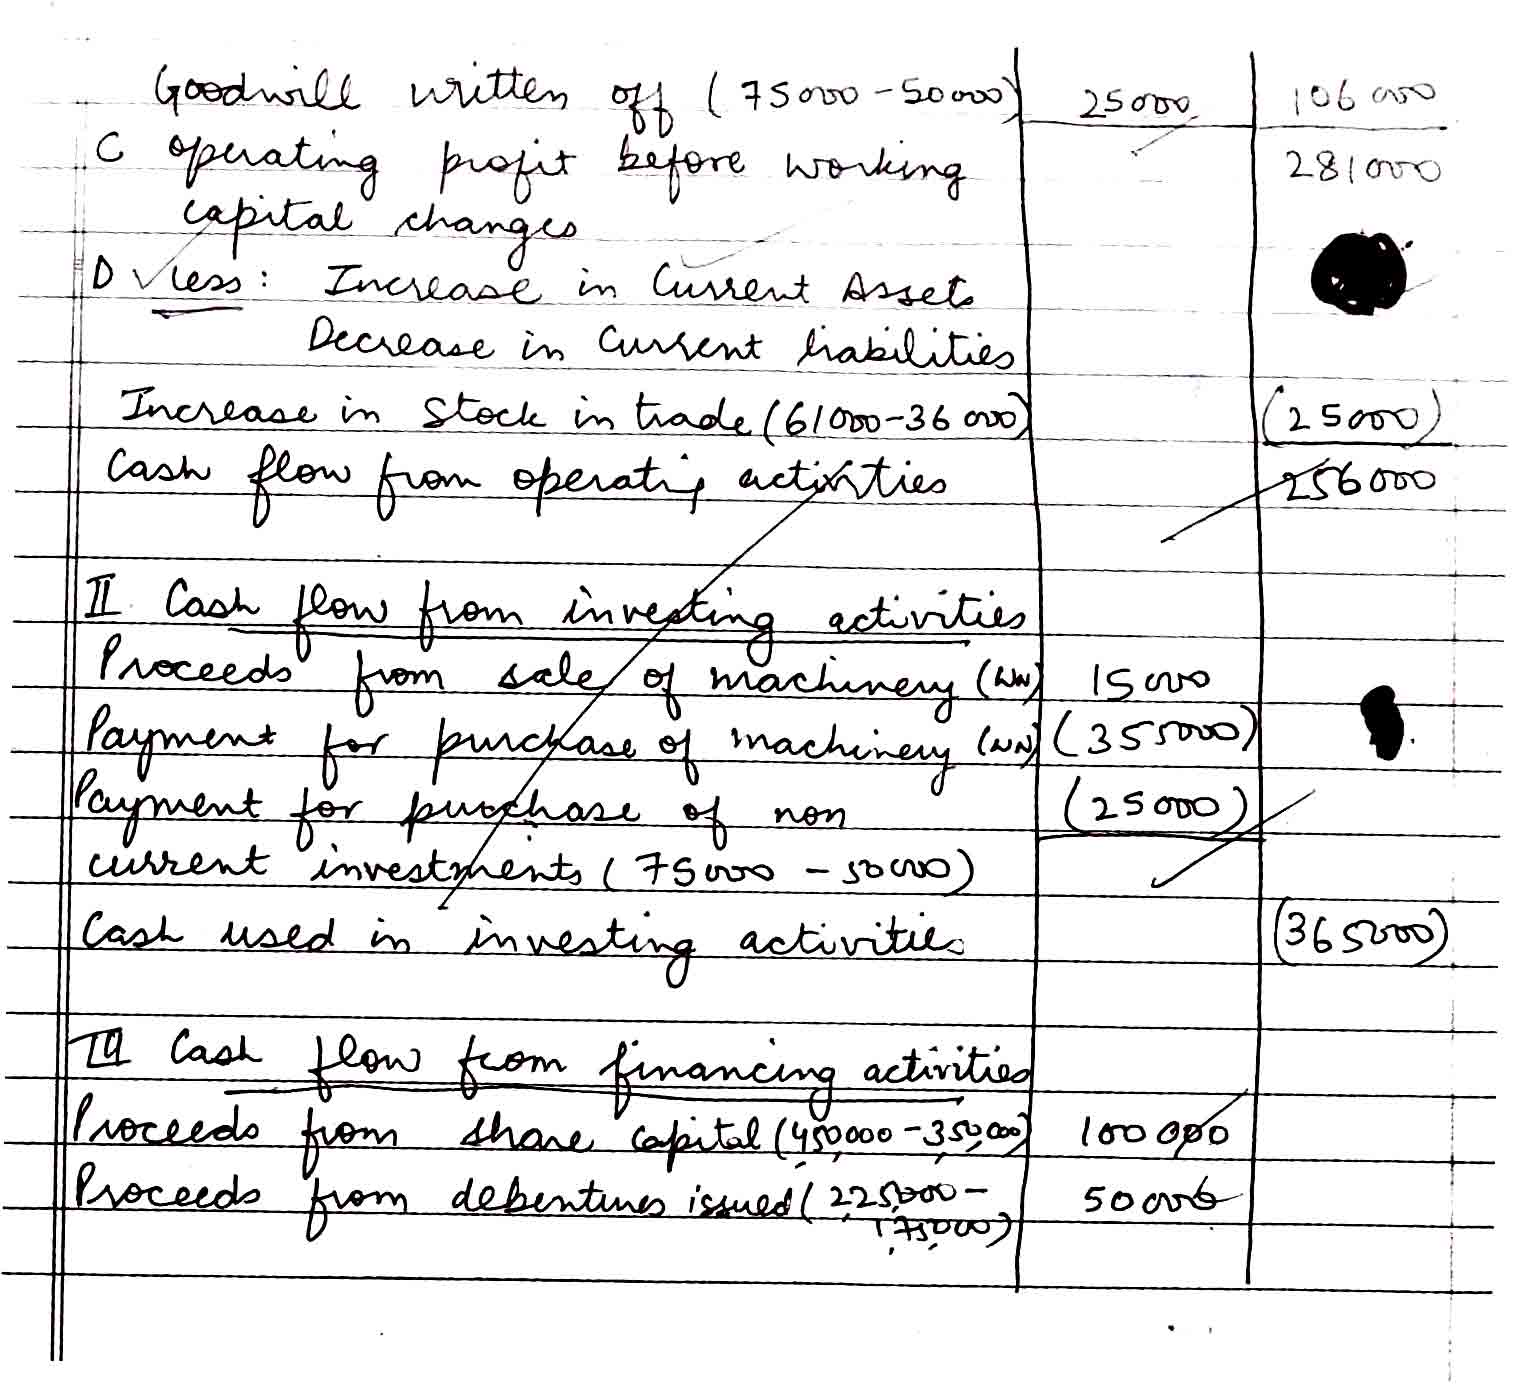 Goodwill written off (75000-50000) 25000 106000
C operating profit before working 281000
capital changes
D less: Increase in Current Assets
Decrease in Current liabilities
Increase in Stock in trade (61000-36000) (25000)
Cash flow from operating activities 256000
II Cash flow from investing activities
Proceeds from sale of machinery (WN) 15000
Payment for purchase of machinery (WN) (355000)
Payment for purchase of non (25000)
current investments (75000 - 50000)
Cash used in investing activities (365000)
III Cash flow from financing activities
Proceeds from share capital (450,000-350,000) 100000
Proceeds from debentures issued (2,25,000- 50000
1,75,000)